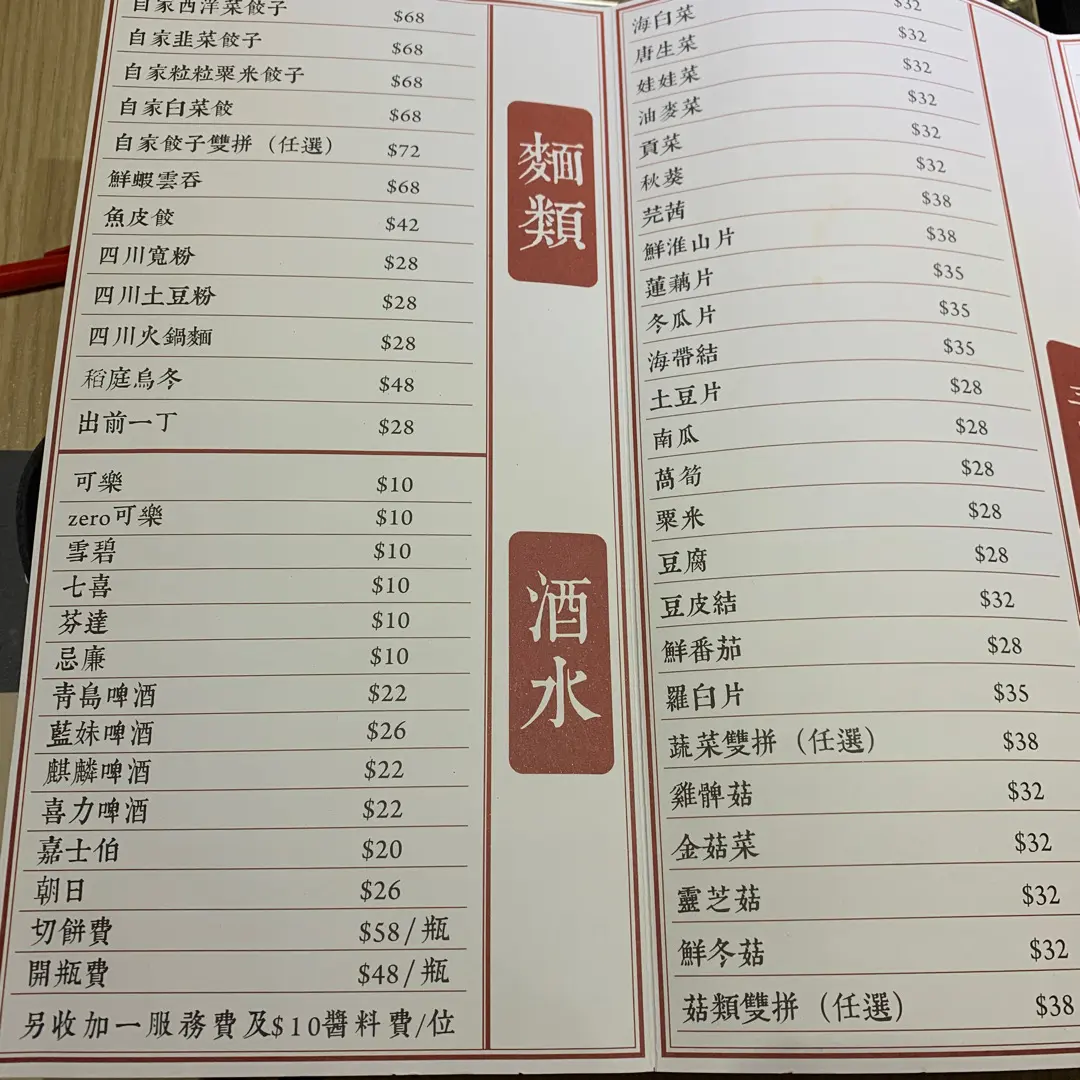 自家西洋菜餃子 $68
自家韭菜餃子 $68
自家粒粒粟米餃子 $68
自家白菜餃 $68
自家餃子雙拼（任選） $72
鮮蝦雲吞 $68
魚皮餃 $42
四川寬粉 $28
四川土豆粉 $28
四川火鍋麵 $28
稻庭烏冬 $48
出前一丁 $28
麵類
可樂 $10
zero可樂 $10
雪碧 $10
七喜 $10
芬達 $10
忌廉 $10
青島啤酒 $22
藍妹啤酒 $26
麒麟啤酒 $22
喜力啤酒 $22
嘉士伯 $20
朝日 $26
切餅費 $58/瓶
開瓶費 $48/瓶
酒水
另收加一服務費及$10醬料費/位
海白菜 $32
唐生菜 $32
娃娃菜 $32
油麥菜 $32
貢菜 $32
秋葵 $32
芫茜 $38
鮮淮山片 $38
蓮藕片 $35
冬瓜片 $35
海帶結 $35
土豆片 $28
南瓜 $28
萵筍 $28
粟米 $28
豆腐 $28
豆皮結 $32
鮮番茄 $28
羅白片 $35
蔬菜雙拼（任選） $38
雞髀菇 $32
金菇菜 $32
靈芝菇 $32
鮮冬菇 $32
菇類雙拼（任選） $38